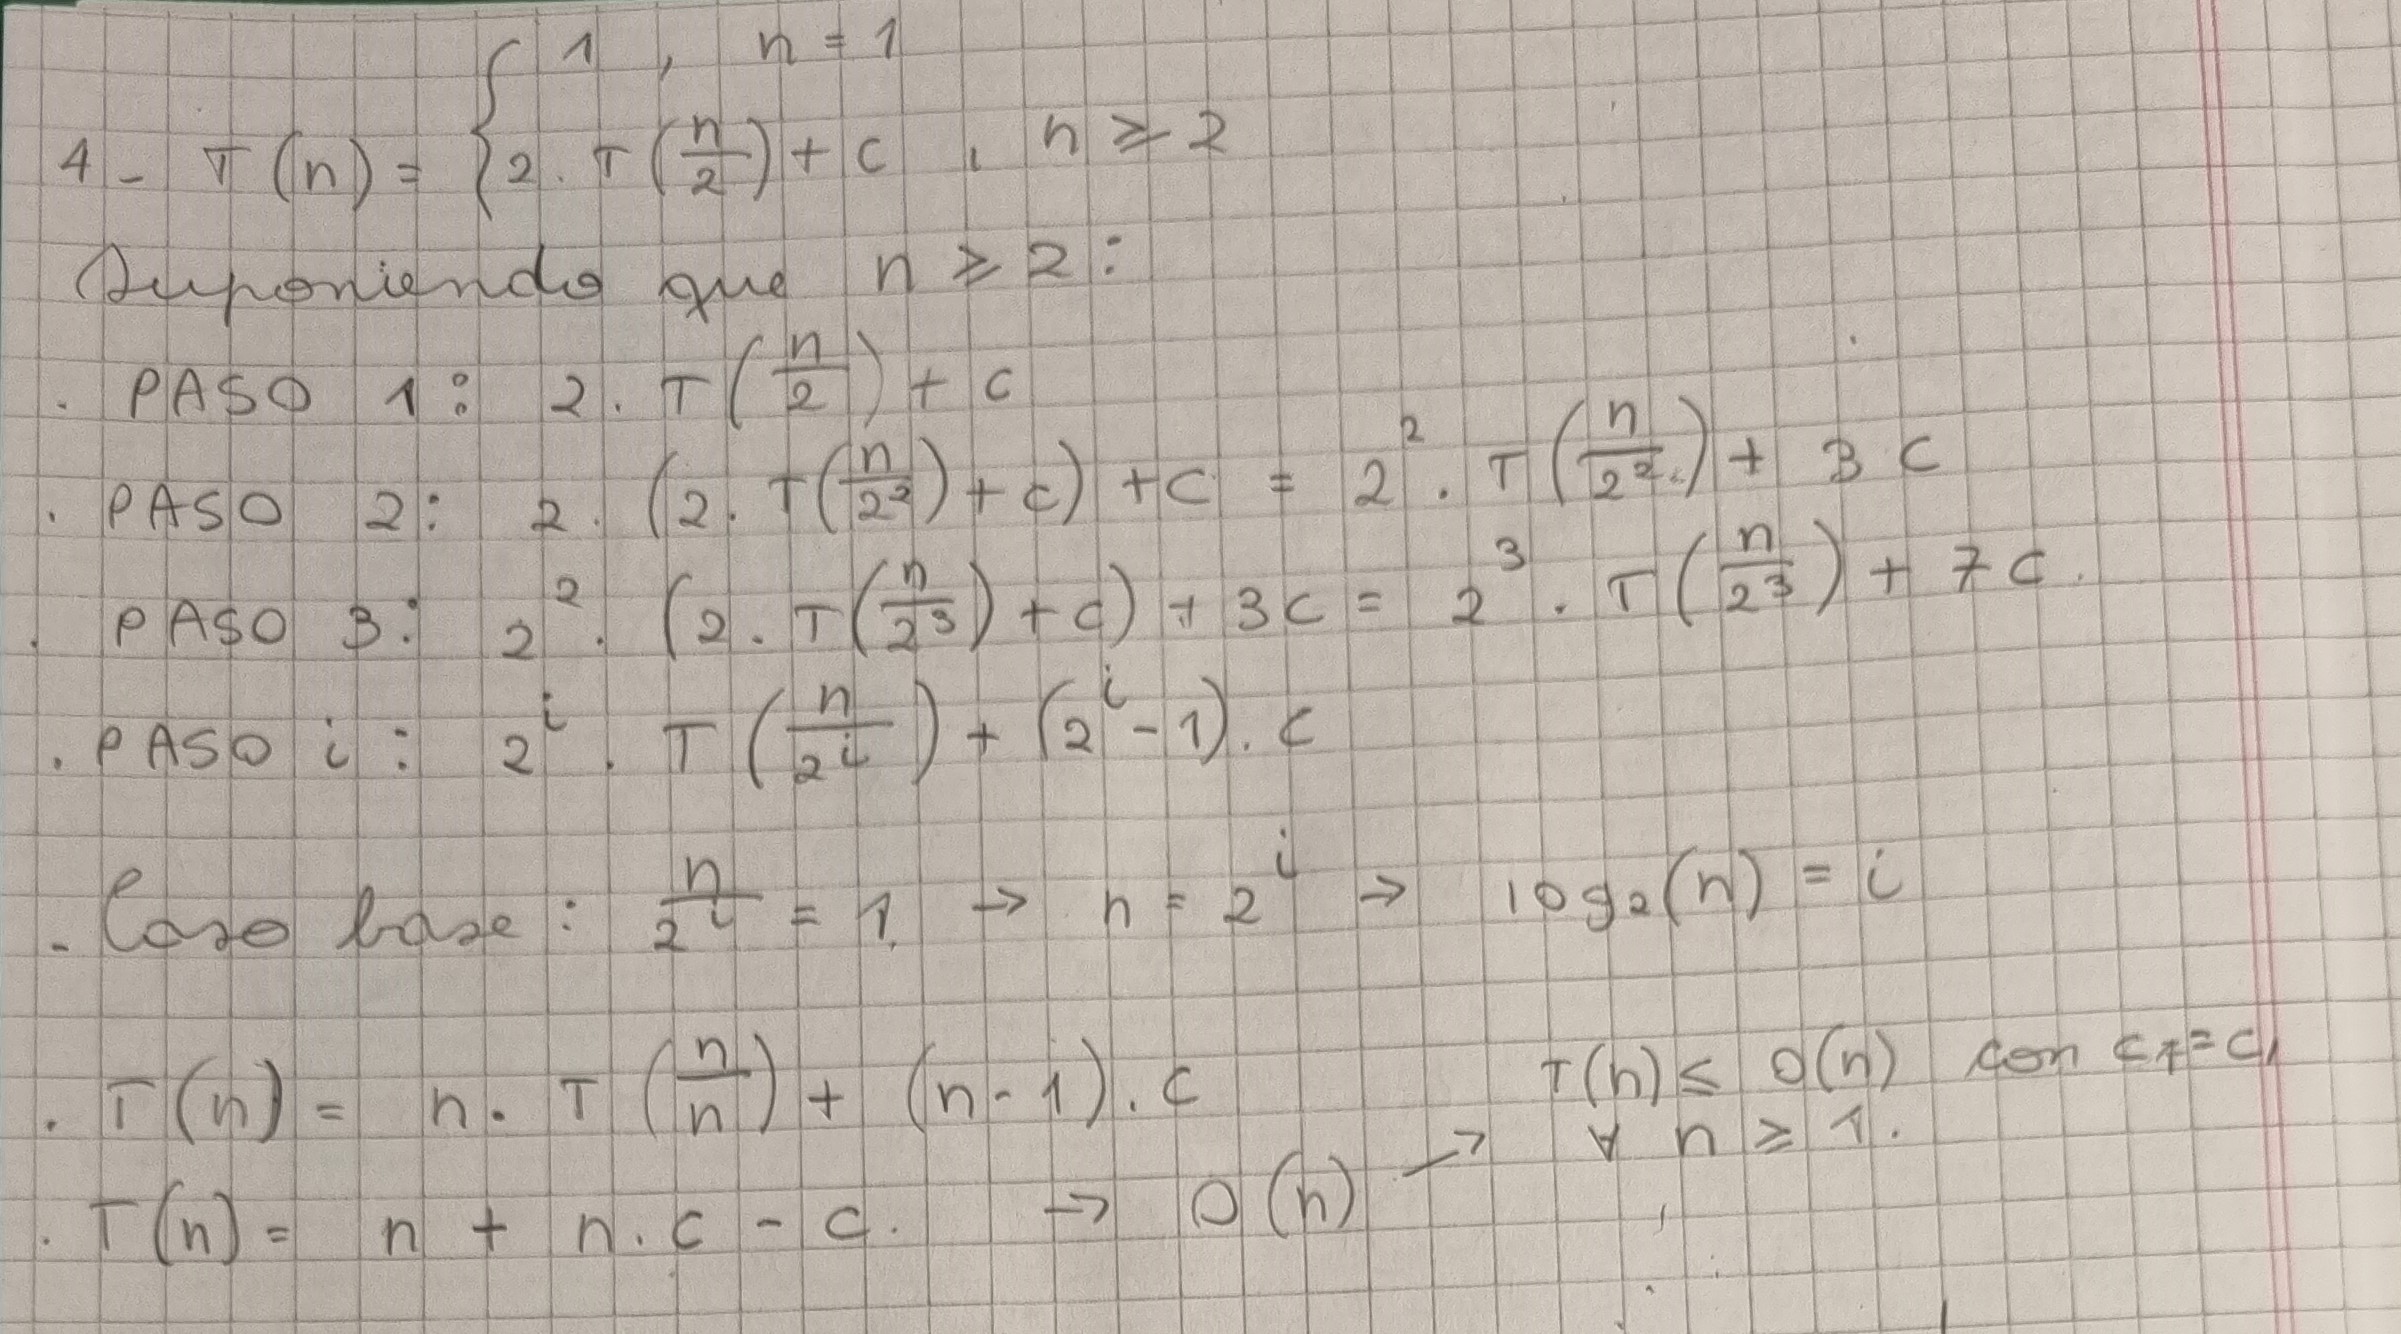 4- T(n) = { 1 , n = 1
2 . T(n/2) + c , n ≥ 2
Suponiendo que n ≥ 2:
. PASO 1: 2. T(n/2) + c
. PASO 2: 2. (2. T(n/2²) + c) + c = 2² . T(n/2²) + 3c
. PASO 3: 2² . (2. T(n/2³) + c) + 3c = 2³ . T(n/2³) + 7c.
. PASO i: 2^i . T(n/2^i) + (2^i - 1). c
- Caso base: n/2^i = 1 → n = 2^i → log₂(n) = i
. T(n) = n. T(n/n) + (n-1). c
. T(n) = n + n. c - c. → O(n) → T(n) ≤ O(n) con c₁=c,
∀ n ≥ 1.